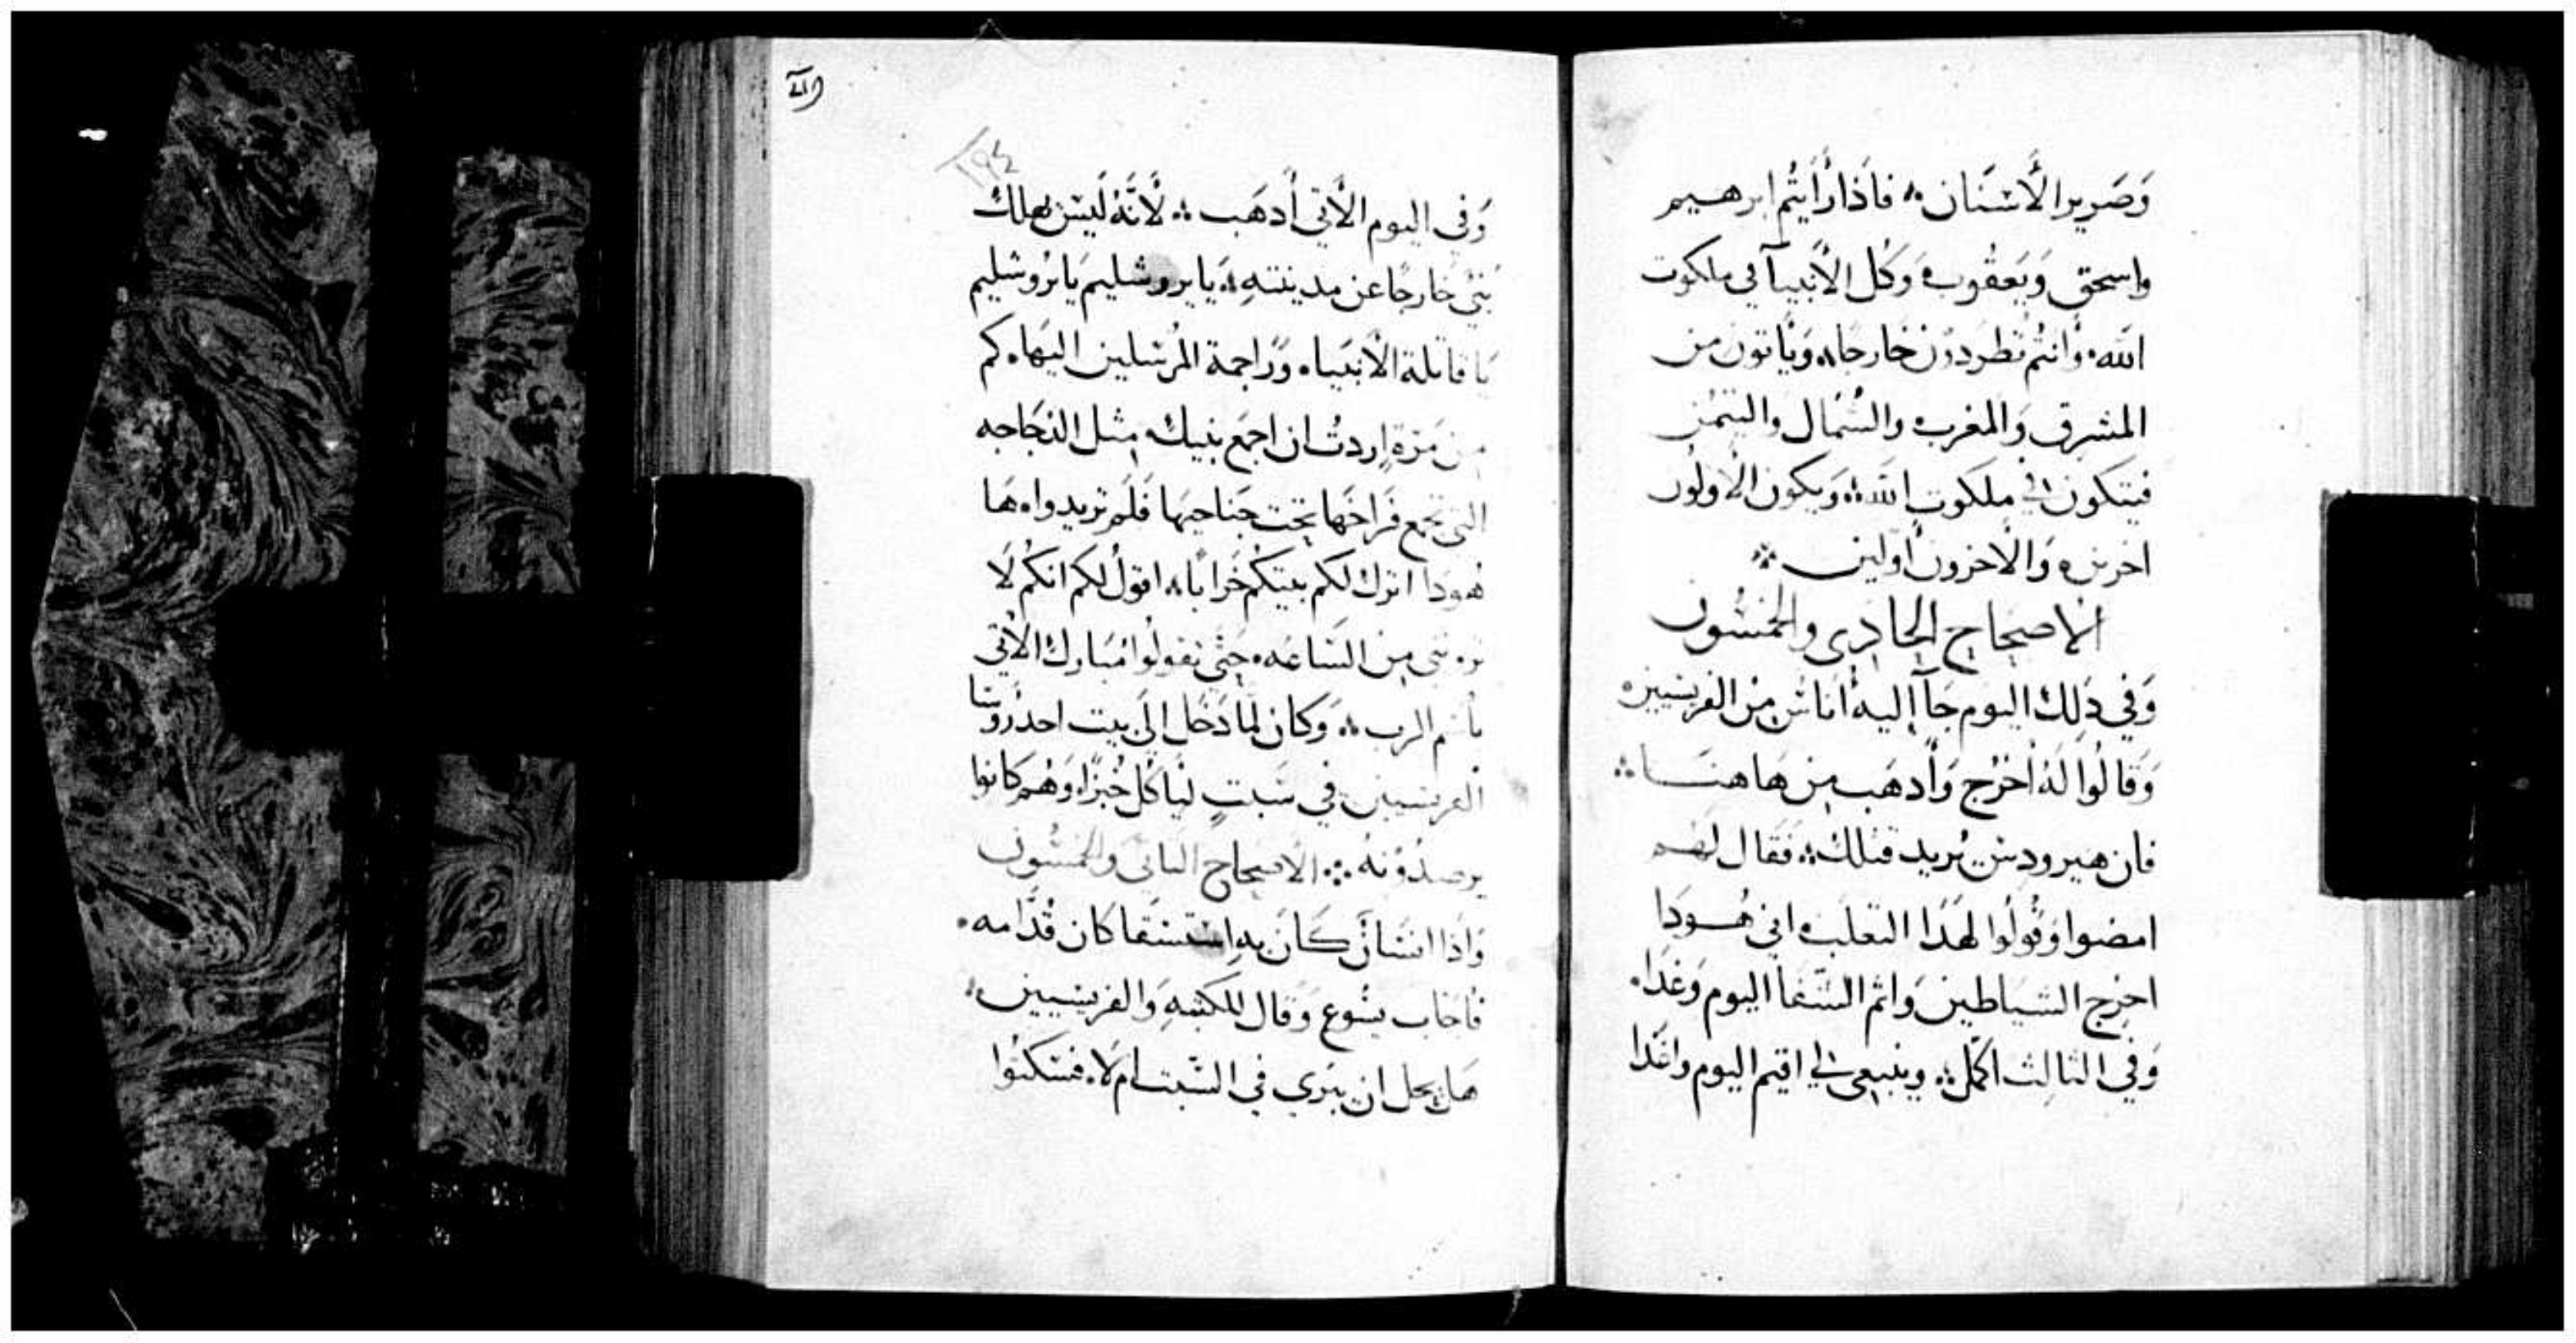 وَصَرِيرا لأَسْنَان ۞ فاَذا رأَيتُم ابرهـيم
واسحق وَيَعقُوب ۞ وَكُل الأَنبيآ في ملكوت
الله ۞ وَانتُم تطردوُن خَارجًا ۞ وَيَاتون من
المشرق وَالمغرب ۞ والشَمال واليَمْن
فيتكون في ملكوت الله ۞ وَيكون الاولُون
اخرين ۞ وَالاخرون اولين ۞
الاصحاح الحادي والخمسُون
وَفي ذلِك اليوم جَآ إليه أناسٌ من الفريسيين ۞
وَقالُوا لَهُ أخرُج وَأدهَب من هَاهنـــا ۞
فان هيرودس يُريد قتلك ۞ فَقال لَهُم
امضوا وَقُولُوا لهَذا الثعلب ۞ اني هُــودَا
اخرج الشياطين وَاتم الشفا اليوم وَغَدًا ۞
وَفي الثالث اكمل ۞ وينبعي لي اقيم اليوم واغَدا
١٩٤
وَفي اليوم الأتي أدهَب ۞ لأَنَّهُ لَيسَ يهلك
نَبيُّ خارجًا عن مدينتهِ ۞ يَا يروشليم يَا يرُوشليم
يَا قاتلة الأنبيا ۞ وَرَاجمة المُرسلين اليهَا ۞ كم
من مَرة اردتُ ان اجمَع بنيك ۞ مثل الدجَاجه
التي تجمع فَراخهَا تحت جَناحيهَا فَلَم تريدوا ۞ هَا
هُودَا اترك لكم بيتكُم خَرابًا ۞ اقولُ لكم انكُم لَا
تروني من السَاعَه ۞ حَتَّي تقولُوا مُبَارك الأتي
بأسم الرب ۞ وَكان لمَا دَخَل الَي بيت احد رُوسَا
الفريسيين في سَبتٍ ليَاكُل خُبزًا ۞ وَهُم كَانوا
يرصدُونهُ ۞ الاصحاح الثاني والخمسُون
وَاذا انسَانٌ كـــان بهِ استسقا كان قُدَّامه ۞
فأجَاب يسُوع وَقال للكتبهِ وَالفريسيين ۞
هَل يحل ان يبَري في السَّبت ام لا ۞ فسَكتُوا